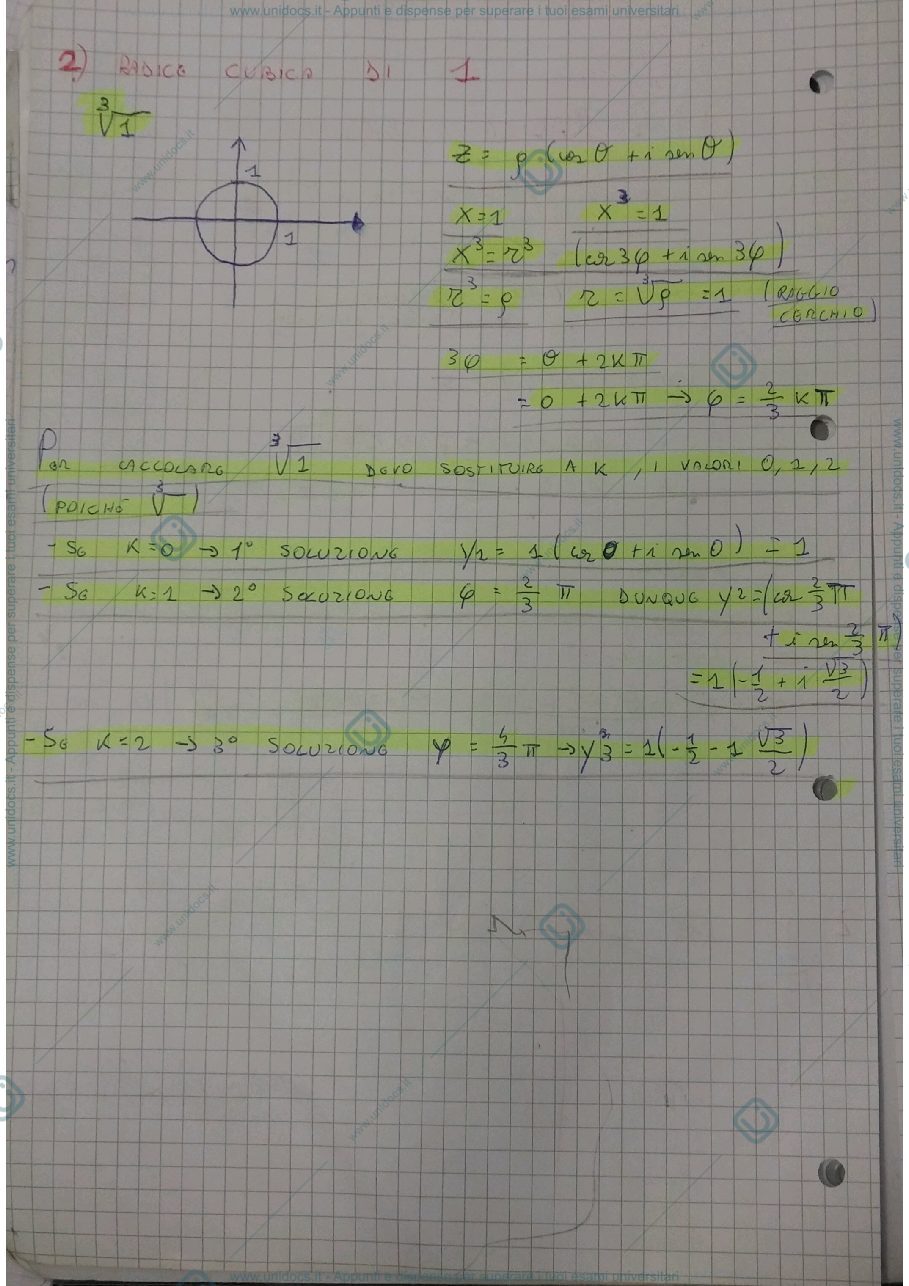 www.unidocs.it - Appunti e dispense per superare i tuoi esami universitari
2) RADICE CUBICA DI 1
³√1
1
1
z = ρ (cos θ + i sen θ)
x=1 x³ =1
x³=r³ (cos 3φ + i sen 3φ)
r³=ρ r = ³√ρ =1 (RAGGIO
CERCHIO)
3φ = θ + 2Kπ
= 0 + 2Kπ → φ = 2/3 Kπ
PER CALCOLARE ³√1 DEVO SOSTITUIRE A K, I VALORI 0, 1, 2
(POICHÉ ³√ )
- SE K=0 → 1° SOLUZIONE y1 = 1 (cos 0 + i sen 0) = 1
- SE K=1 → 2° SOLUZIONE φ = 2/3 π DUNQUE y2=(cos 2/3 π
+ i sen 2/3 π)
=1 (-1/2 + i √3/2)
- SE K=2 → 3° SOLUZIONE φ = 4/3 π → y3 = 1(-1/2 - 1 √3/2)
www.unidocs.it - Appunti e dispense per superare i tuoi esami universitari
www.unidocs.it - Appunti e dispense per superare i tuoi esami universitari
www.unidocs.it - Appunti e dispense per superare i tuoi esami universitari